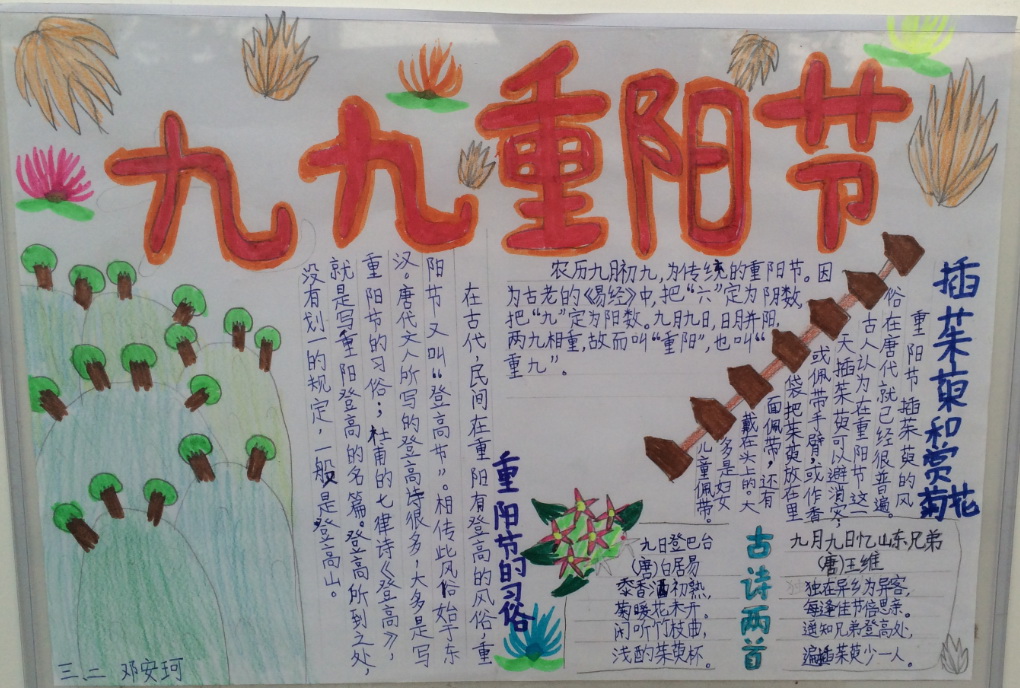 九九重阳节
农历九月初九,为传统的重阳节。因
为古老的《易经》中,把“六”定为阴数,
把“九”定为阳数。九月九日,日月并阳,
两九相重,故而叫“重阳”,也叫“
重九”。
重阳节的习俗
在古代,民间在重阳有登高的风俗,重
阳节又叫“登高节”。相传此风俗始于东
汉。唐代文人所写的登高诗很多,大多是写
重阳节的习俗;杜甫的七律诗《登高》,
就是写重阳登高的名篇。登高所到之处,
没有划一的规定,一般是登高山。
插茱萸和赏菊花
重阳节插茱萸的风
俗在唐代就已经很普遍。
古人认为在重阳节这一
天插茱萸可以避消灾;
或佩带手臂,或作香
袋把茱萸放在里
面佩带,还有
戴在头上的。大
多是妇女
儿童佩带。
古诗两首
九日登巴台
(唐)白居易
黍香酒初熟,
菊暖花未开。
闲听竹枝曲,
浅酌茱萸杯。
九月九日忆山东兄弟
(唐)王维
独在异乡为异客,
每逢佳节倍思亲。
遥知兄弟登高处,
遍插茱萸少一人。
三、二 邓安珂